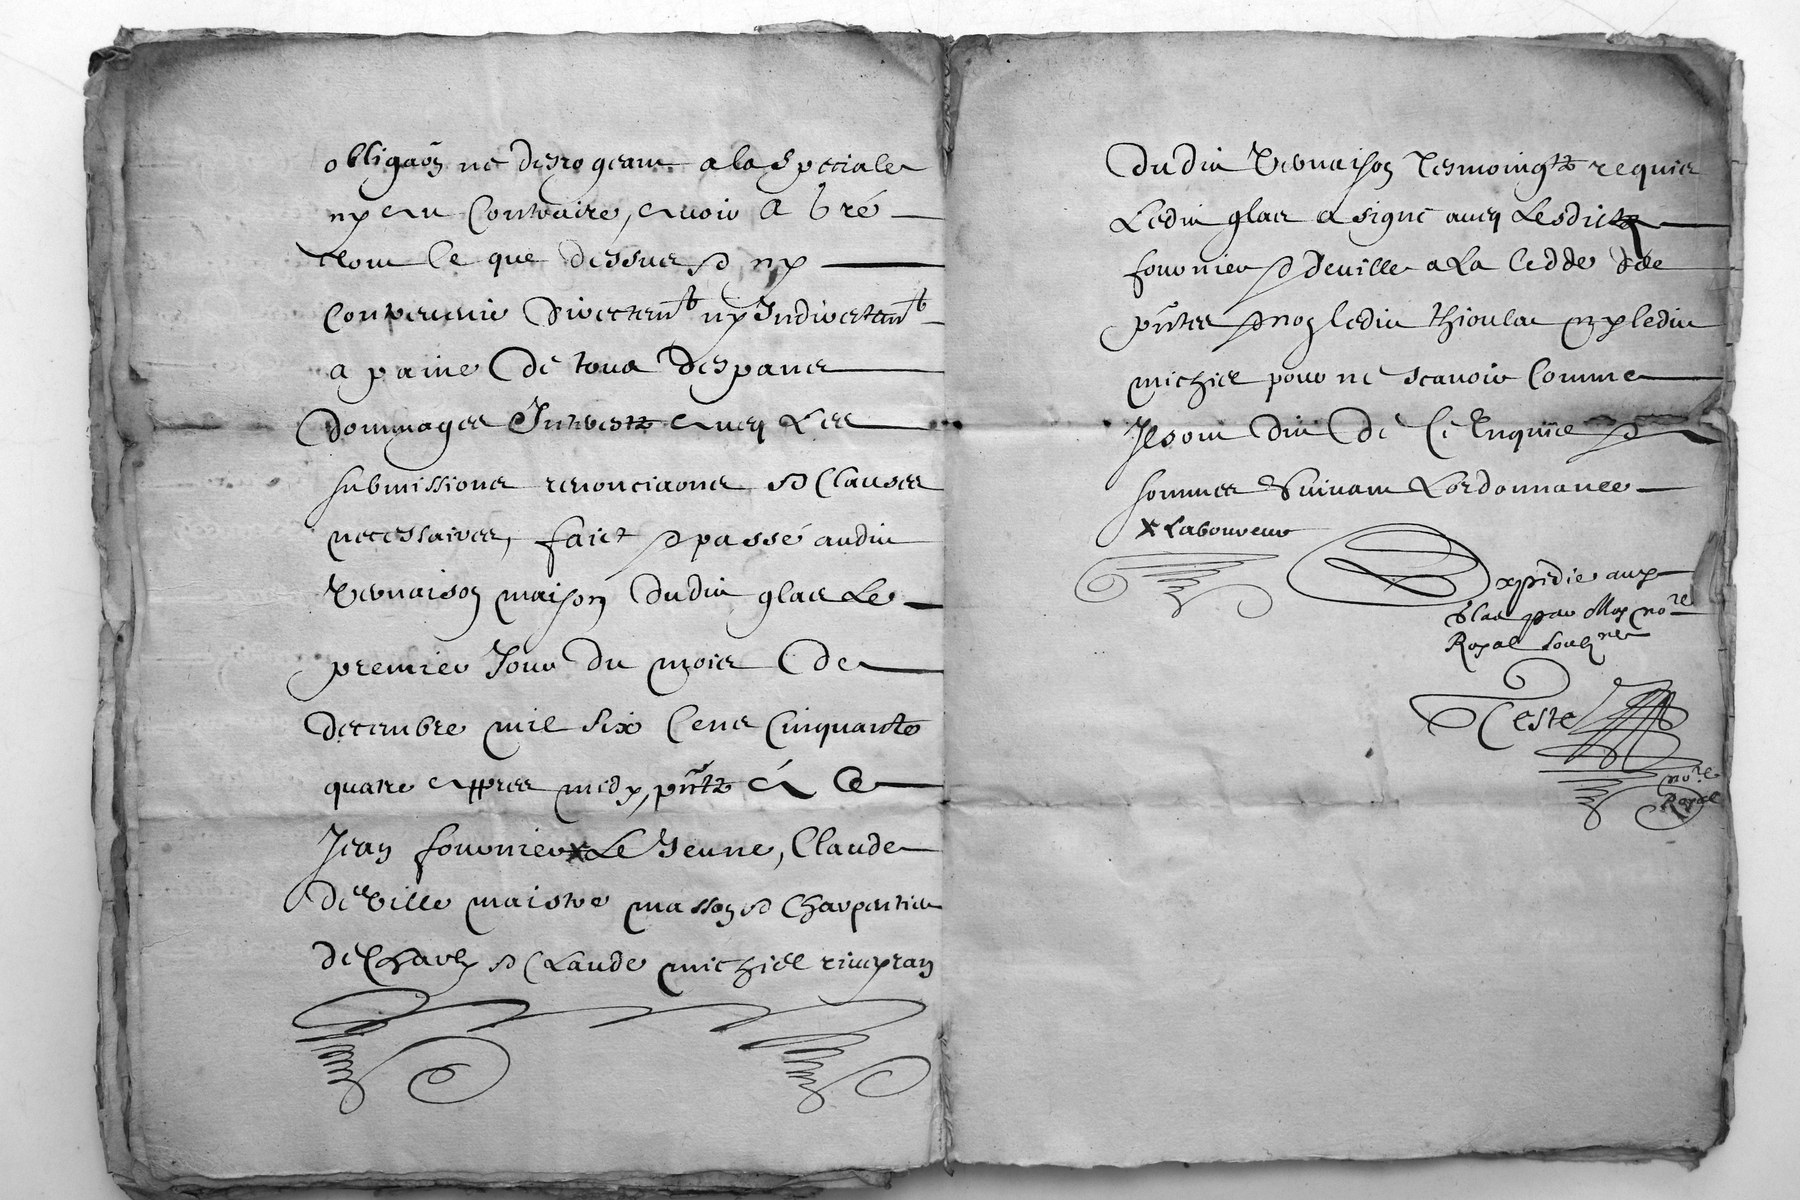 obligaon ne desrogeant a la speciale
ny au Contraire, avoir a gré
tout Ce que dessus et ny
Contrevenir directemt ny Indirectemt
a paine De tous despans
Dommages Interestz avecq Les
submissions renonciaons et Clauses
necessaires, faict et passé audit
Vernaison maison dudit glas Le
premier Jour Du mois De
decembre mil six Cens Cinquante
quatre appres midy, pntz a Ce
Jean fournier x Le Jeune, Claude
Deville maistre masson et Charpentier
de Charly et Claude michiel
dudit Vernaison Tesmoingtz requis
Ledit glas a signé avecq Lesdictz
fournier et deville a La Cedde des
pntes et non ledit thioulat ny ledit
michiel pour ne scavoir Comme
Ilz ont dit De Ce Enquis et
sommes Suivant Lordonnance
x Laboureur
Expédié aux
glas par Moy nore
Royal soubzne
Teste
nore
Royal